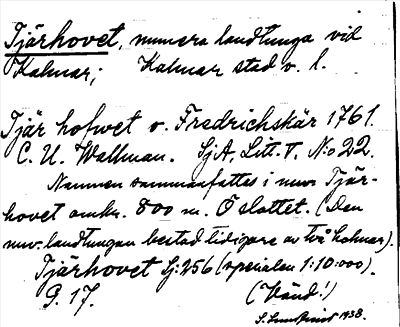 Tjärhovet, numera landtunga vid
Kalmar; Kalmar stad o. l.
Tjär hofwet o. Fredrichskär 1761.
C. U. Wallman. SjA, Litt. T. N:o 22.
Namnen sammanfattas i nuv. Tjär-
hovet omkr. 800 m. Ö slottet. (Den
nuv. landtungan bestod tidigare av två holmar).
Tjärhovet Sj: 256 (specialen 1:10:000).
P. 17. (Vänd!)
1938.